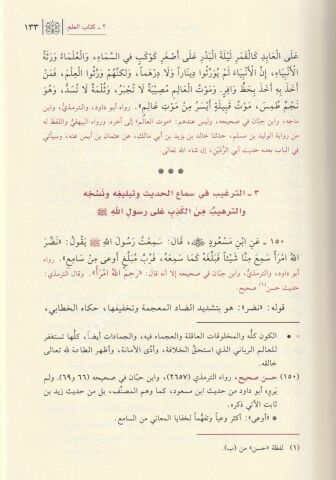 ٢ ـ كتاب العلم ١٣٣
عَلَى العَابِدِ كَالقَمَرِ لَيْلَةَ البَدْرِ عَلَى أَصْغَرِ كَوْكَبٍ في السَّمَاءِ، وَالعُلَمَاءُ وَرَثَةُ
الأَنْبِيَاءِ، إِنَّ الأَنْبِيَاءَ لَمْ يُوَرِّثُوا دِينَاراً وَلَا دِرْهَماً، وَلَكِنَّهُمْ وَرَّثُوا العِلْمَ، فَمَنْ
أَخَذَ بِهِ أَخَذَ بِحَظٍّ وَافِرٍ، وَمَوْتُ العَالِمِ مُصِيْبَةٌ لَا تُجْبَرُ، وَثُلْمَةٌ لَا تُسَدُّ، وَهُوَ
نَجْمٌ طُمِسَ، مَوْتُ قَبِيلَةٍ أَيْسَرُ مِنْ مَوْتِ عَالِمٍ». رواه أبو داود، والترمذيُّ، وابن
ماجه، وابن حِبَّان في صحيحه، وليس عندهم: «موت العالم» إلى آخره. ورواه البيهقيُّ واللفظ له
من رواية الوليد بن مسلم، حدثنا خالد بن يزيد بن أبي مالك، عن عثمان بن أيمن عنه، وسيأتي
في الباب بعده حديث أبي الرُّدَيْن، إن شاء الله تعالى.
* * *
٣ ـ الترغيب في سماع الحديث وتبليغه ونَسْخِه
والترهيبُ مِنَ الكَذِبِ عَلى رسولِ اللهِ ﷺ
١٥٠ ـ عَنِ ابْنِ مَسْعُودٍ ﷺ، قَالَ: سَمِعْتُ رَسُولَ اللهِ ﷺ يَقُولُ: «نَضَّرَ
اللهُ امْرَأً سَمِعَ مِنَّا شَيْئاً فَبَلَّغَهُ كَمَا سَمِعَهُ، فَرُبَّ مُبَلَّغٍ أَوْعى مِنْ سَامِعٍ». رواه
أبو داود، والترمذيُّ، وابن حِبَّان في صحيحه إلا أنه قال: «رَحِمَ اللهُ امْرَأً». وقال الترمذي:
حديث حسن(١) صحيح.
قوله: «نضر»: هو بتشديد الضاد المعجمة وتخفيفها، حكاه الخطابي،
الكون كلُّه والمخلوقات العاقلة والعجماء فيه، والجمادات أيضاً، كلُّها تستغفر
للعالم الرباني الذي استحقَّ الخلافة، وأدَّى الأمانة، وأظهر الطاعة لله تعالى
خالقه.
(١٥٠) حسن صحيح، رواه الترمذي (٢٦٥٧)، وابن حِبَّان في صحيحه (٦٦ و٦٩). ولم
يَروِه أبو داود من حديث ابن مسعود، كما وهم المصنِّف، بل من حديث زيد بن
ثابت الآتي ذكره.
* «أوعى»: أكثر وعياً وتفهُّماً لخفايا المعاني من السامع.
(١) لفظة «حسن» من (ب).